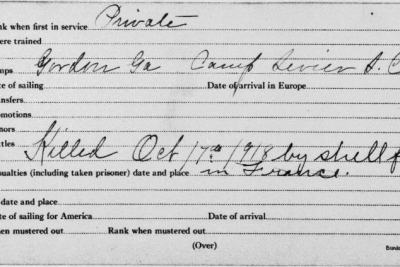 ank when first in service Private
ere trained
mps Gordon Ga Camp Sevier S. C
te of sailing Date of arrival in Europe
ansfers
omotions
nors
ttles Killed Oct 17th 1918 by shell f
asualties (including taken prisoner) date and place in France.
date and place
te of sailing for America Date of arrival
hen mustered out Rank when mustered out
(Over)